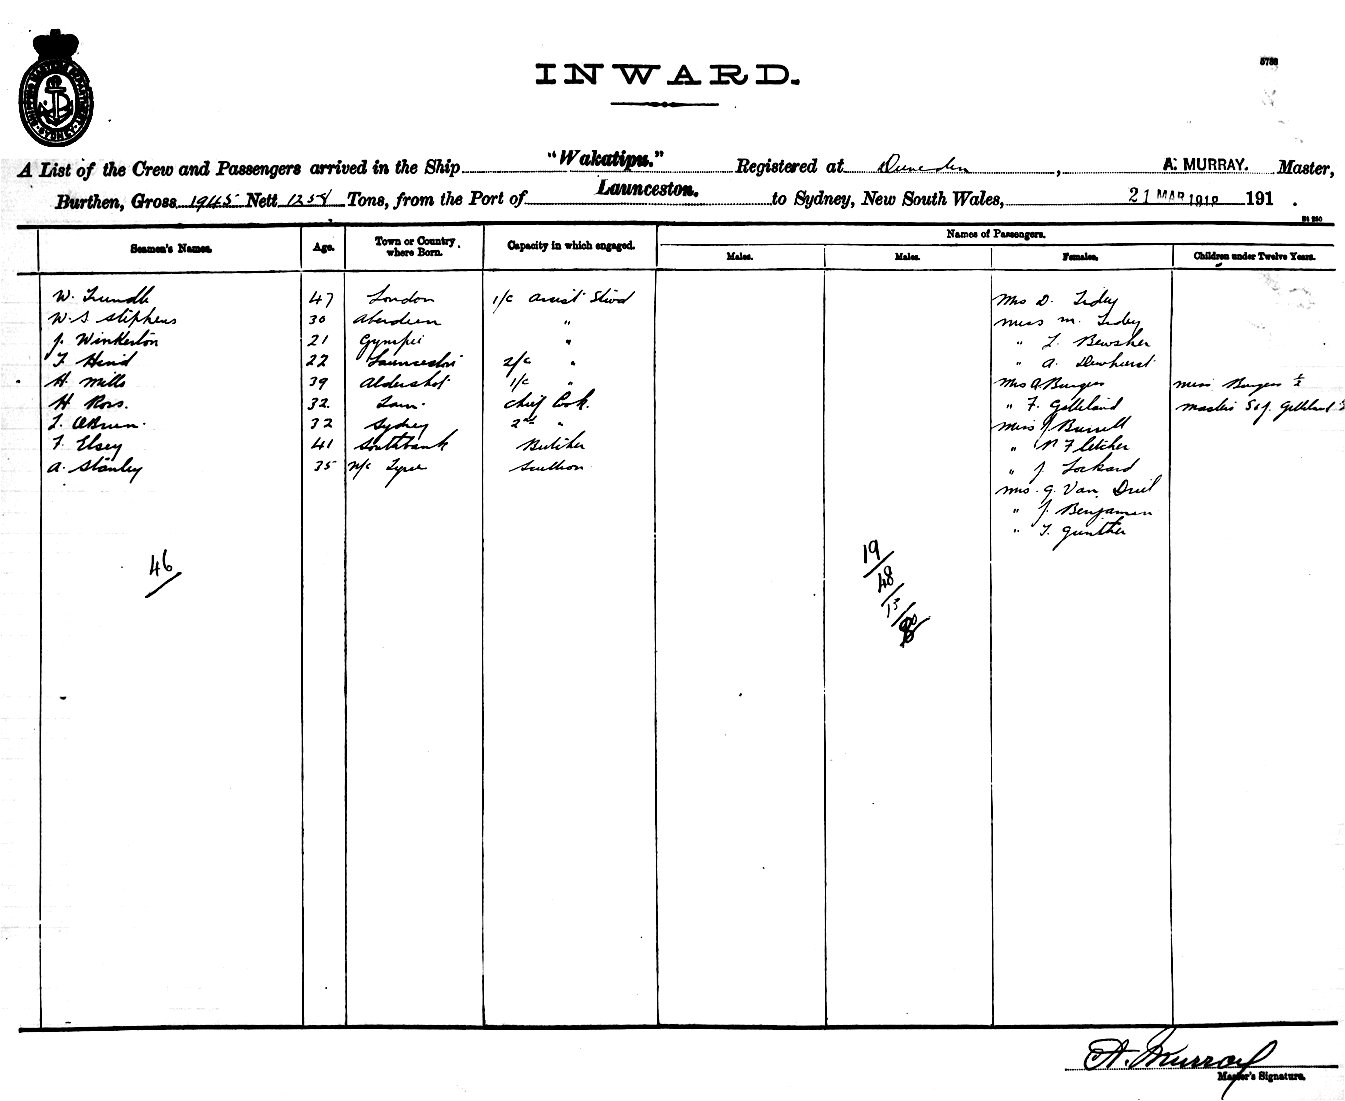 INWARD.
A List of the Crew and Passengers arrived in the Ship "Wakatipu." Registered at Dunedin, A. MURRAY. Master,
Burthen, Gross 1945 Nett 1258 Tons, from the Port of Launceston. to Sydney, New South Wales, 21 MAR 1918 191 .
Seamen's Names. Age. Town or Country, where Born. Capacity in which engaged. Names of Passengers.
Males. Males. Females. Children under Twelve Years.
W. Trundle 47 London 1/c assist Stwd Mrs D. Tidey
W. S Stephens 30 Aberdeen " Miss M. Tidey
J. Winkerton 21 Gympie " " L. Bewsher
F Hind 22 Launceston 2/c " " A. Dewhurst
H. Mills 39 Aldershot 1/c " Mrs A Burgess Miss Burgess ½
H Ross. 32 Chief Cook. " F. Gilleland Masters S & J. Gilleland
T. OBrien. 32 Sydney 2nd " Miss J Burrell
F. Elsey 41 Southbank Butcher " N Fletcher
A. Stanley 35 N/c Tyne Scullion " J. Lockard
Mrs. G. Van Driel
" J. Benjamin
" T. Gunther
46
19
48
13
80
A. Murray
Master's Signature.